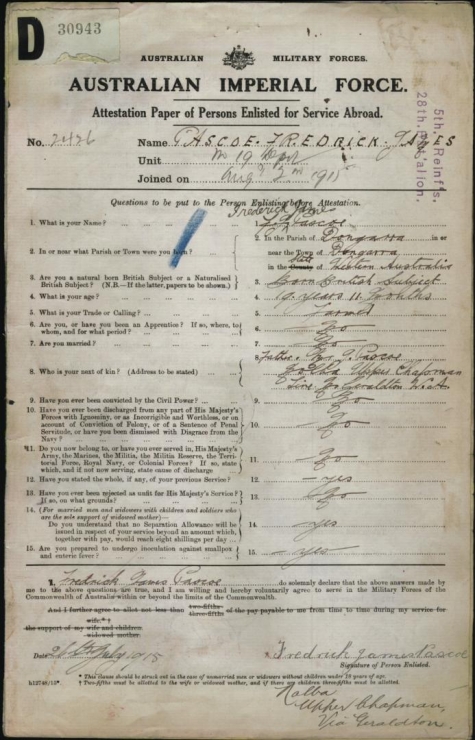 D
30943
AUSTRALIAN MILITARY FORCES.
AUSTRALIAN IMPERIAL FORCE.
Attestation Paper of Persons Enlisted for Service Abroad.
5th Reinf's.
28th Battalion.
No. 2426 Name PASCOE. FREDRICK. JAMES
Unit
Joined on Aug 2nd 1915
Questions to be put to the Person Enlisting before Attestation.
1. What is your Name? ... 1. Frederick James Pascoe
2. In or near what Parish or Town were you born? ... 2. In the Parish of Dongarra in or
near the Town of Dongarra
in the County of State Western Australia
3. Are you a natural born British Subject or a Naturalised
British Subject? (N.B.—If the latter, papers to be shown.) 3. Born British Subject
4. What is your age? ... 4. 19 years 11 months
5. What is your Trade or Calling? ... 5. Farmer
6. Are you, or have you been an Apprentice? If so, where, to
whom, and for what period? ... 6. No
7. Are you married? ... 7. No
8. Who is your next of kin? (Address to be stated) ... 8. Father Mr J. Pascoe
Upper Chapman
Geraldton
9. Have you ever been convicted by the Civil Power? ... 9. No
10. Have you ever been discharged from any part of His Majesty's
Forces with Ignominy, or as Incorrigible and Worthless, or on
account of Conviction of Felony, or of a Sentence of Penal
Servitude, or have you been Dismissed with Disgrace from the
Navy? ... 10. No
*11. Do you now belong to, or have you ever served in, His Majesty's
Army, the Marines, the Militia, the Militia Reserve, the Terri-
torial Force, Royal Navy, or Colonial Forces? If so, state
which, and if not now serving, state cause of discharge 11. No
12. Have you stated the whole, if any, of your previous Service? 12. yes
13. Have you ever been rejected as unfit for His Majesty's Service?
If so, on what grounds? 13. No
14. (For married men and widowers with children and soldiers who
are the sole support of widowed mother)—
Do you understand that no Separation Allowance will be
issued in respect of your service beyond an amount which,
together with pay, would reach eight shillings per day ... 14. yes
15. Are you prepared to undergo inoculation against smallpox
and enteric fever? ... 15. yes
I, Fredrick James Pascoe do solemnly declare that the above answers made by
me to the above questions are true, and I am willing and hereby voluntarily agree to serve in the Military Forces of the
Commonwealth of Australia within or beyond the limits of the Commonwealth.
And I further agree to allot not less than two-fifths three-fifths of the pay payable to me from time to time during my service for
the support of my wife* † wife and children. widowed mother.
Date July 1915 Fredrick James Pascoe
Signature of Person Enlisted.
* This clause should be struck out in the case of unmarried men or widowers without children under 18 years of age.
† Two-fifths must be allotted to the wife or widowed mother, and if there are children three-fifths must be allotted.
Nolba
Upper Chapman,
Via Geraldton.